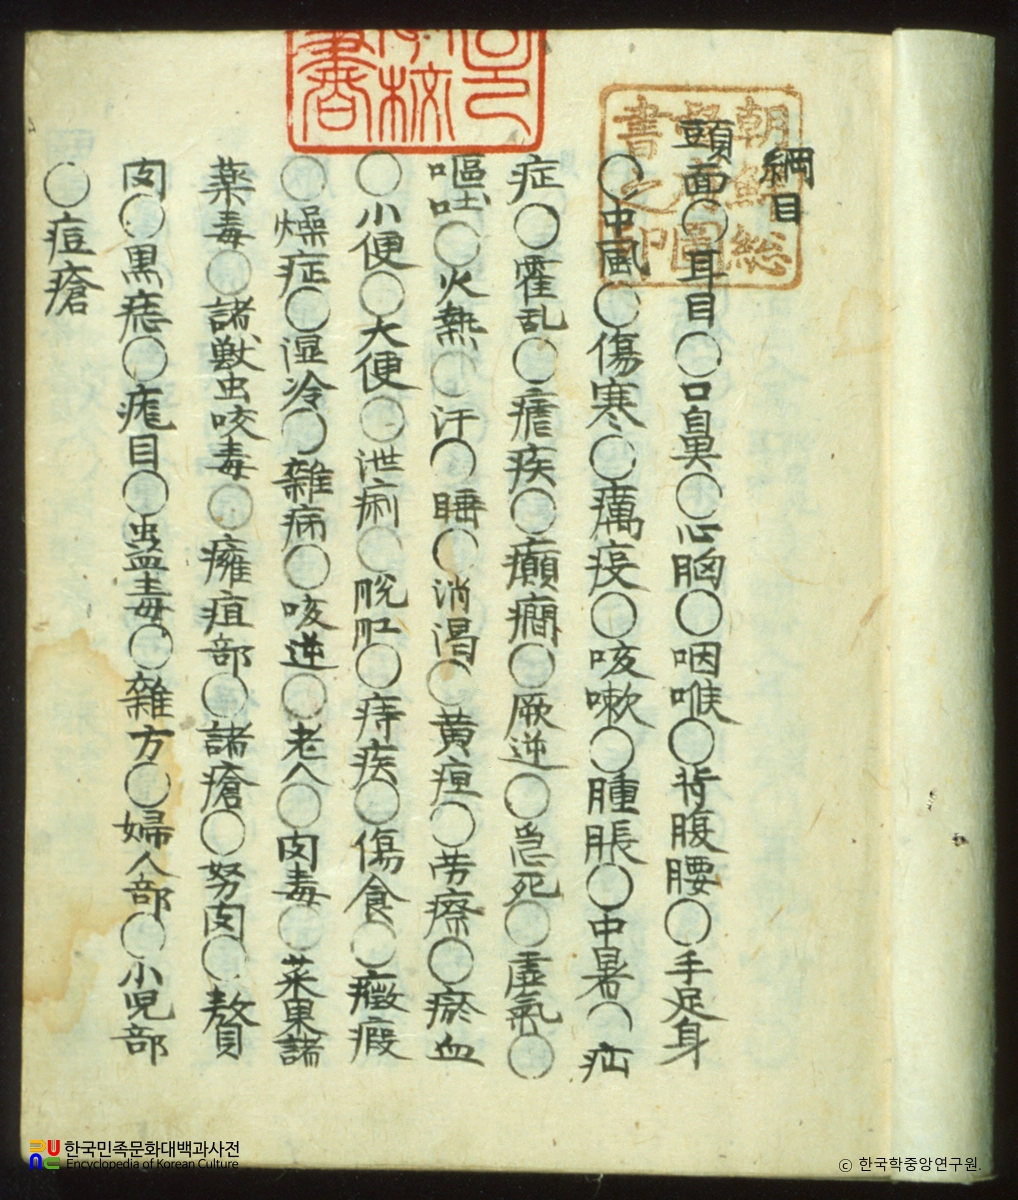 綱目
頭面○耳目○口鼻○心胸○咽喉○背腹腰○手足身
○中風○傷寒○癘疫○咳嗽○腫脹○中暑○疝
症○霍乱○瘧疾○癲癎○厥逆○急死○虛氣○
嘔吐○火熱○汗○睡○消渴○黄疸○劳瘵○瘀血
○小便○大便○泄痢○脫肛○痔疾○傷食○癥瘕
○燥症○湿冷○雜病○咳逆○老人○肉毒○菜果諸
藥毒○諸獣虫咬毒○癰疽部○諸瘡○努肉○贅
肉○黒痣○疣目○蛊毒○雜方○婦人部○小児部
○痘瘡
朝鮮総督府圖書之印
한국민족문화대백과사전
Encyclopedia of Korean Culture
© 한국학중앙연구원.